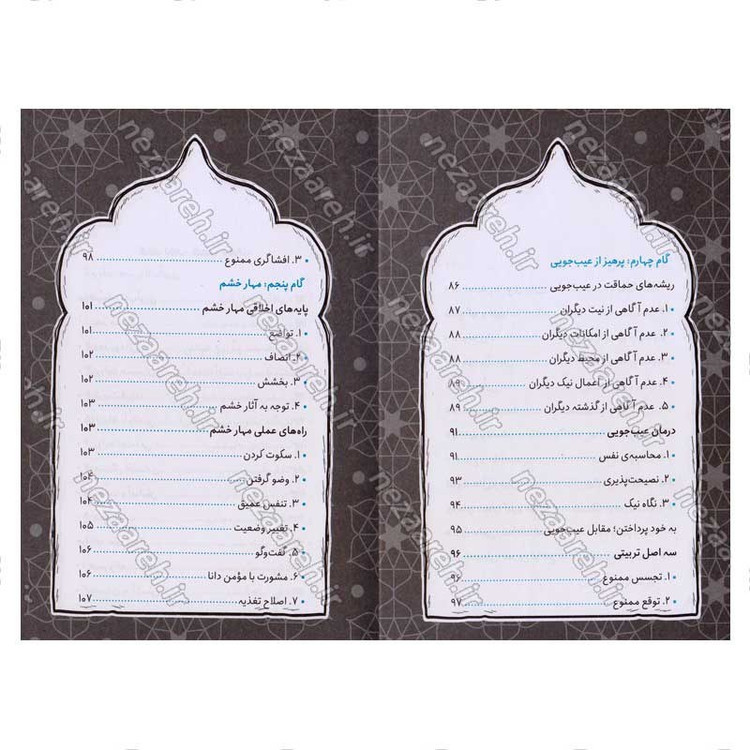 گام چهارم: پرهیز از عیب‌جویی
ریشه‌های حماقت در عیب‌جویی ۸۶
۱. عدم آگاهی از نیت دیگران ۸۷
۲. عدم آگاهی از امکانات دیگران ۸۸
۳. عدم آگاهی از محیط دیگران ۸۸
۴. عدم آگاهی از اعمال نیک دیگران ۸۹
۵. عدم آگاهی از گذشته دیگران ۸۹
درمان عیب‌جویی ۹۱
۱. محاسبه‌ی نفس ۹۱
۲. نصیحت‌پذیری ۹۳
۳. نگاه نیک ۹۴
به خود پرداختن؛ مقابل عیب‌جویی ۹۵
سه اصل تربیتی ۹۶
۱. تجسس ممنوع ۹۶
۲. توقع ممنوع ۹۷
۳. افشاگری ممنوع ۹۸
گام پنجم: مهار خشم
پایه‌های اخلاقی مهار خشم ۱۰۱
۱. تواضع ۱۰۱
۲. انصاف ۱۰۲
۳. بخشش ۱۰۲
۴. توجه به آثار خشم ۱۰۳
راه‌های عملی مهار خشم ۱۰۳
۱. سکوت کردن ۱۰۳
۲. وضو گرفتن ۱۰۴
۳. تنفس عمیق ۱۰۴
۴. تغییر وضعیت ۱۰۵
۵. گفت‌وگو ۱۰۶
۶. مشورت با مؤمن دانا ۱۰۶
۷. اصلاح تغذیه ۱۰۷
nezaareh.ir